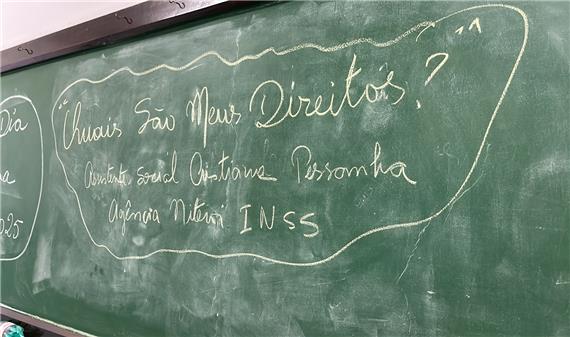 Dia
a
025
"Quais São Meus Direitos?"
Assistente Social Cristiane Pessanha
Agência Niterói INSS